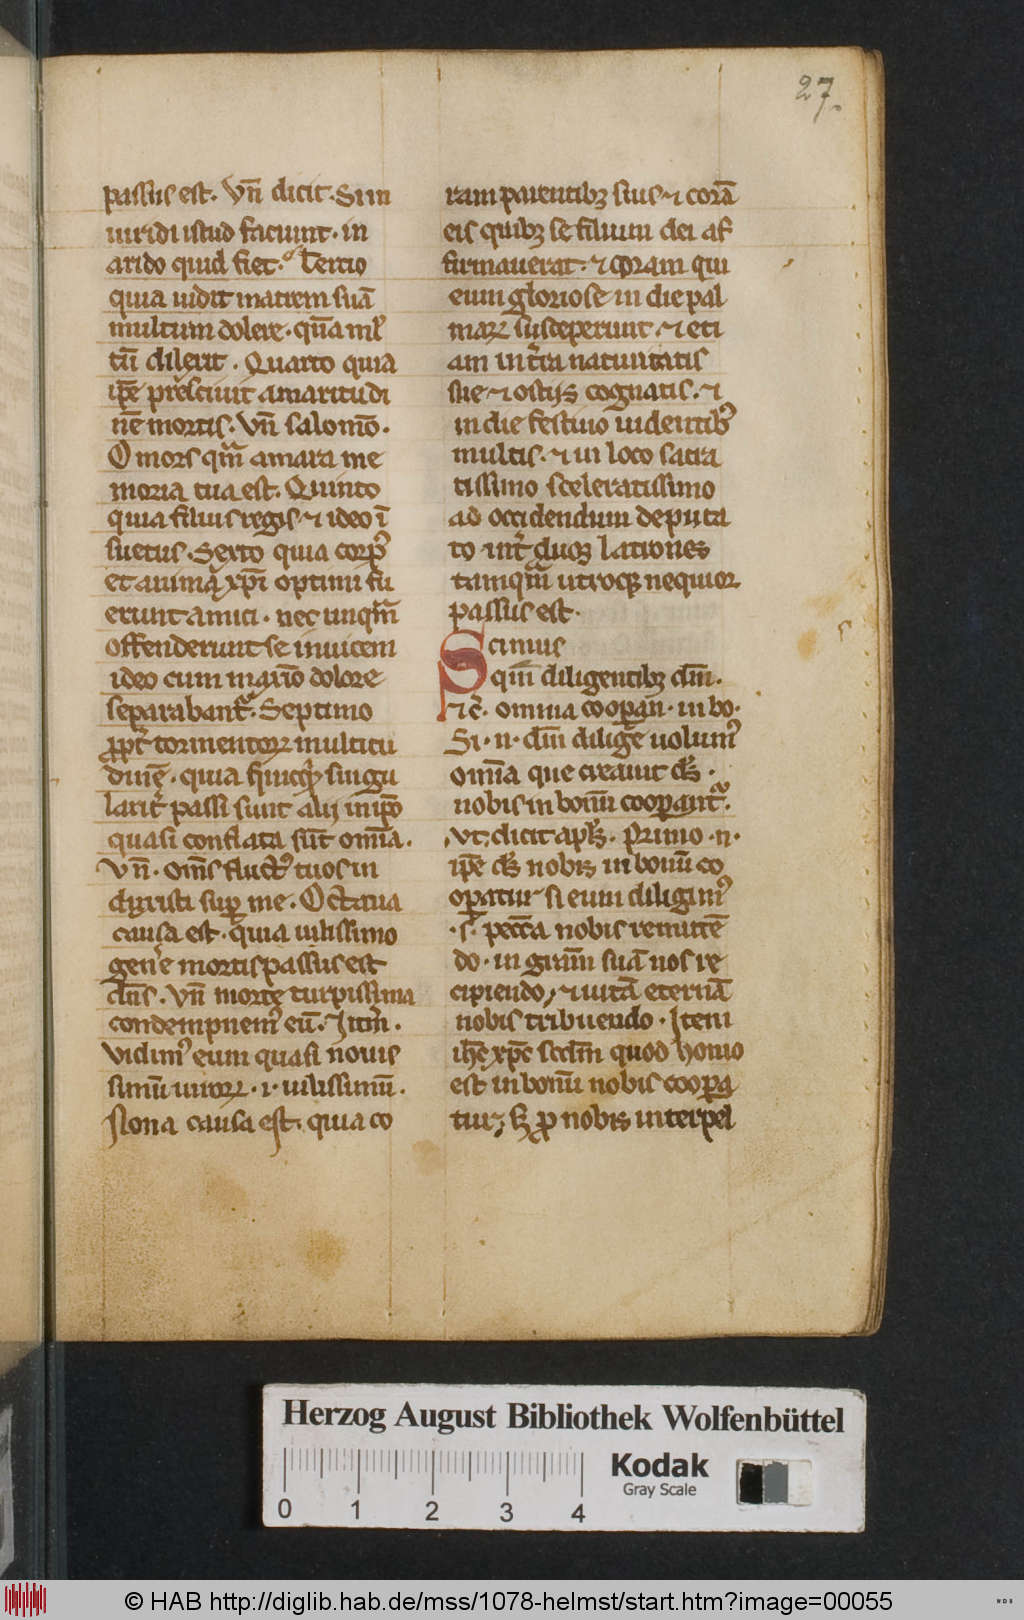 27.
passus est. Vn̄ dicit. Si in
uiridi istud faciunt. in
arido quid fiet. Tertio
quia uidit matrem suā
multum dolere. qn̄a ml̕
tū dilexit. Quarto quia
ip̄e presciuit amaritudi
nē mortis. Vn̄ salomō.
O mors qm̄ amara me
moria tua est. Quinto
quia filius regis ⁊ ideo ī
suetus. Sexto quia corp᷒
et anima xp̄i optimi fu
erunt amici. nec unqm̄
offenderunt se inuicem
ideo cum maxīo dolore
separabant᷑. Septimo
ꝓpt̕ tormentoꝝ multitu
dinē. quia singu
larit̕ passi sunt alij in ip̄o
quasi conflata sūt om̄ia.
Vn̄. om̄s fluct᷒ tuos in
duxisti suꝑ me. Octaua
causa est. quia uilissimo
gen̕e mortis passus est
dn̄s. Vn̄ morte turpissima
condempnem᷒ eū. Itm̄.
Vidim᷒ eum quasi nouis
simū uiroꝝ .i. uilissimū.
Nona causa est. quia co
ram parentibꝫ suis ⁊ corā
eis quibꝫ se filium dei af
firmauerat. ⁊ coram qui
eum gloriose in die pal
maꝝ susceperunt ⁊ eti
am int̕ra natiuitatis
sue ⁊ ostijs cognatis. ⁊
in die festiuo uidentib᷒
multis. ⁊ in loco sacra
tissimo sceleratissimo
ad occidendum deputa
to int̕ duos latrones
tamqm̄ utroqꝫ nequior
passus est.
Scimus
qm̄ diligentibꝫ dm̄.
⁊c̄. omnia cooꝑan. in bo.
Si .n. dm̄ diligē uolum᷒
om̄ia que creauit ds̄.
nobis in bonū cooꝑant᷑.
Vt dicit apl̄s. Primo .n.
ip̄e ds̄ nobis in bonū co
oꝑatur si eum diligim᷒
.s. pecc̄a nobis remittē
do. in gram̄ suā nos re
cipiendo, ⁊ uitā eternā
nobis tribuendo. Item
ih̄c xp̄c scdm̄ quod homo
est in bonū nobis cooꝑa
tur, sꝫ ꝓ nobis interpel
Herzog August Bibliothek Wolfenbüttel
0 1 2 3 4
Kodak
Gray Scale
© HAB http://diglib.hab.de/mss/1078-helmst/start.htm?image=00055